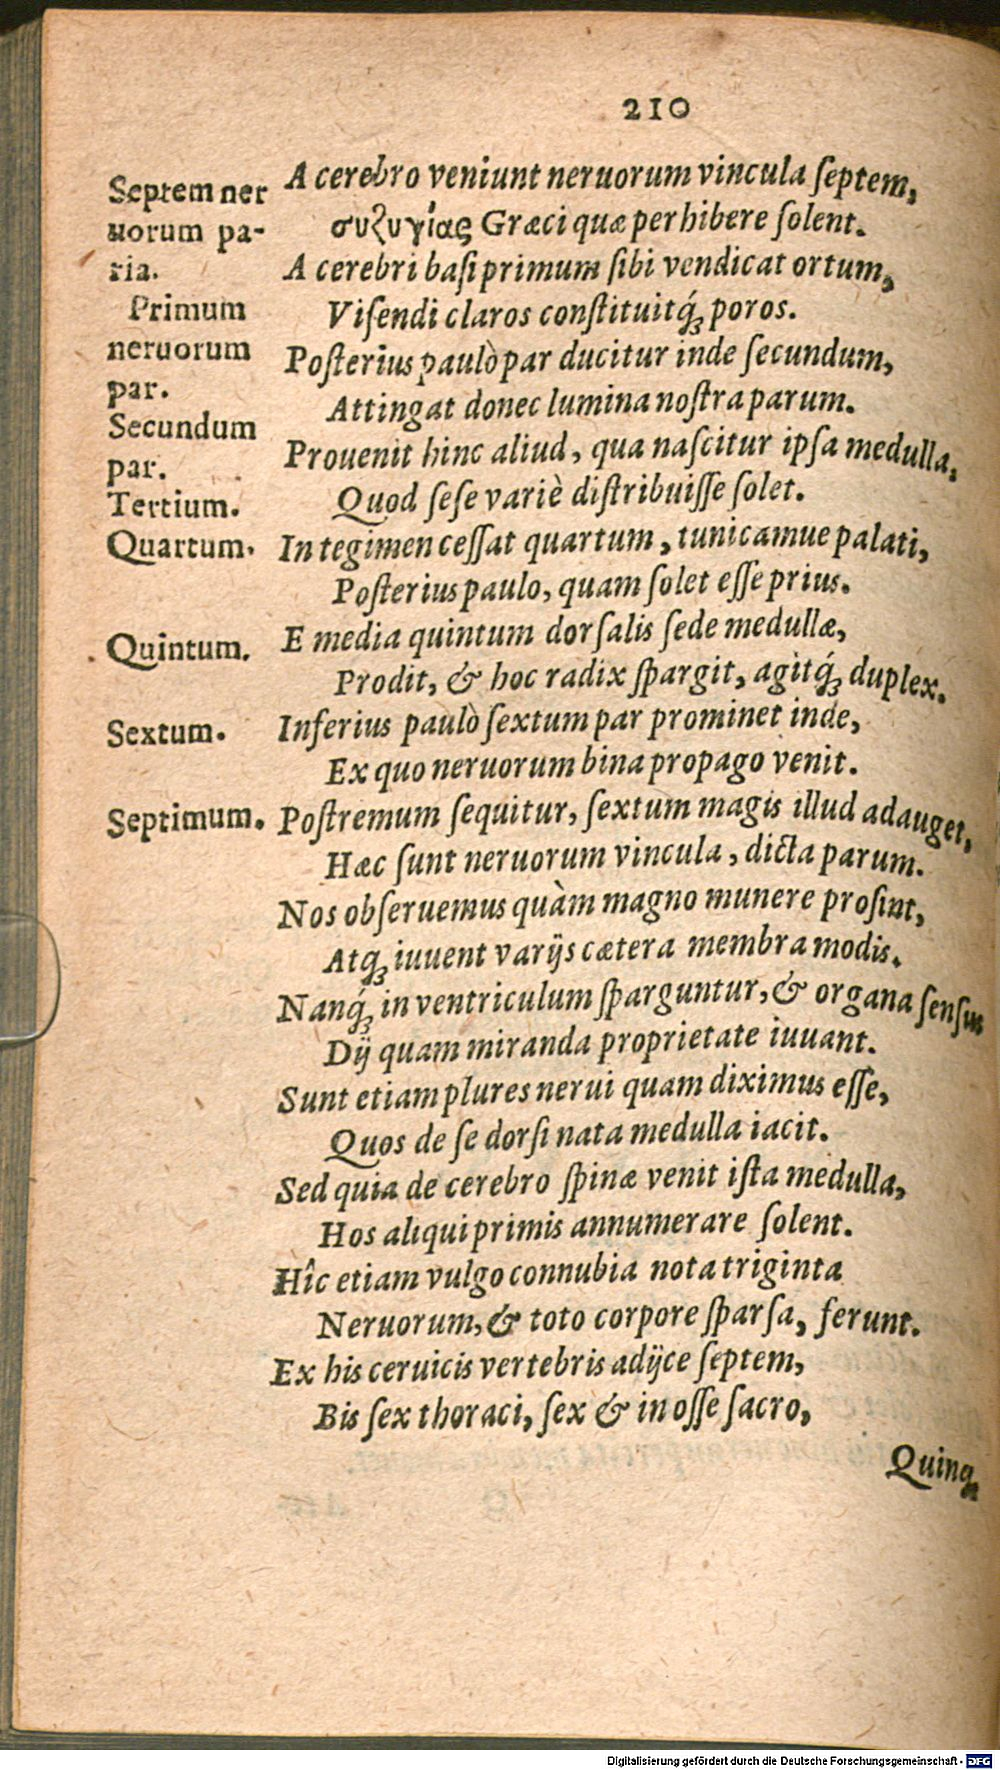 210
Septem ner
uorum pa-
ria.
Primum
neruorum
par.
Secundum
par.
Tertium.
Quartum.
Quintum.
Sextum.
Septimum.
A cerebro veniunt neruorum vincula ſeptem,
συζυγίας Græci quæ perhibere ſolent.
A cerebri baſi primum ſibi vendicat ortum,
Viſendi claros conſtituitq́ꝫ poros.
Poſterius paulò par ducitur inde ſecundum,
Attingat donec lumina noſtra parum.
Prouenit hinc aliud, qua naſcitur ipſa medulla,
Quod ſeſe variè diſtribuiſſe ſolet.
In tegimen ceſſat quartum, tunicamue palati,
Poſterius paulo, quam ſolet eſſe prius.
E media quintum dorſalis ſede medullæ,
Prodit, & hoc radix ſpargit, agitq́ꝫ duplex.
Inferius paulò ſextum par prominet inde,
Ex quo neruorum bina propago venit.
Poſtremum ſequitur, ſextum magis illud adauget,
Hæc ſunt neruorum vincula, dicta parum.
Nos obſeruemus quàm magno munere proſint,
Atqꝫ iuuent varijs cætera membra modis.
Nanq́ꝫ in ventriculum ſparguntur, & organa ſenſus
Dij quam miranda proprietate iuuant.
Sunt etiam plures nerui quam diximus eſſe,
Quos de ſe dorſi nata medulla iacit.
Sed quia de cerebro ſpinæ venit iſta medulla,
Hos aliqui primis annumerare ſolent.
Hîc etiam vulgo connubia nota triginta
Neruorum, & toto corpore ſparſa, ferunt.
Ex his ceruicis vertebris adijce ſeptem,
Bis ſex thoraci, ſex & in oſſe ſacro,
Quinqꝫ
Digitalisierung gefördert durch die Deutsche Forschungsgemeinschaft - DFG